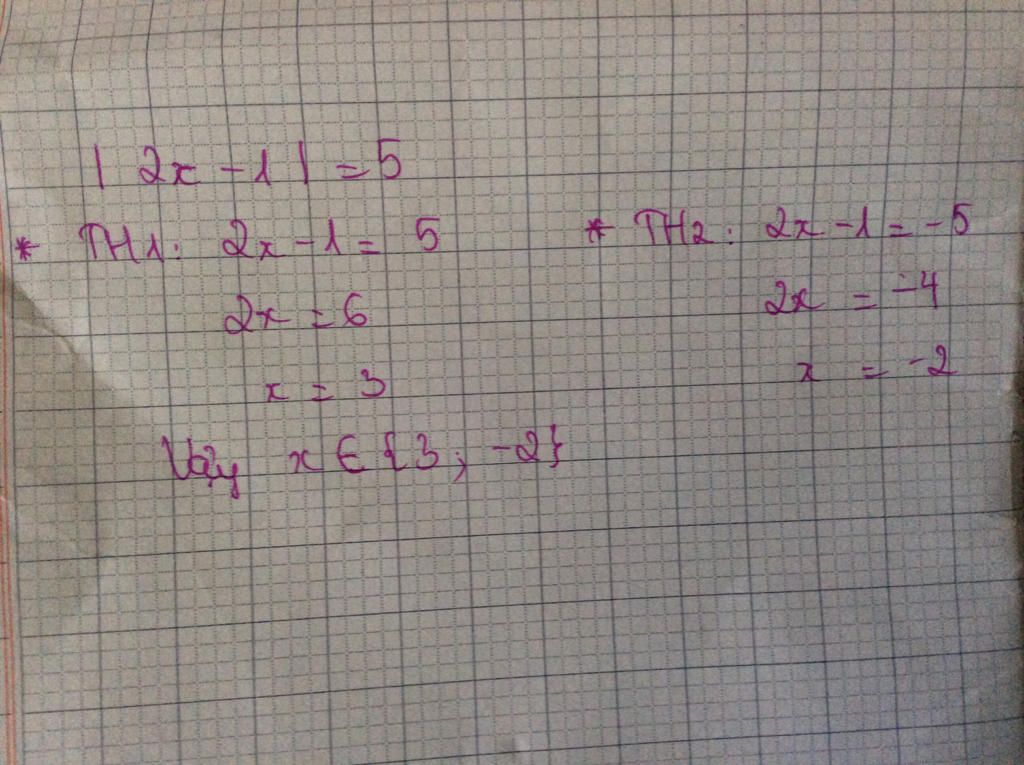 | 2x - 1 | = 5
* TH1: 2x - 1 = 5
2x = 6
x = 3
* TH2: 2x - 1 = -5
2x = -4
x = -2
Vậy x ∈ {3; -2}